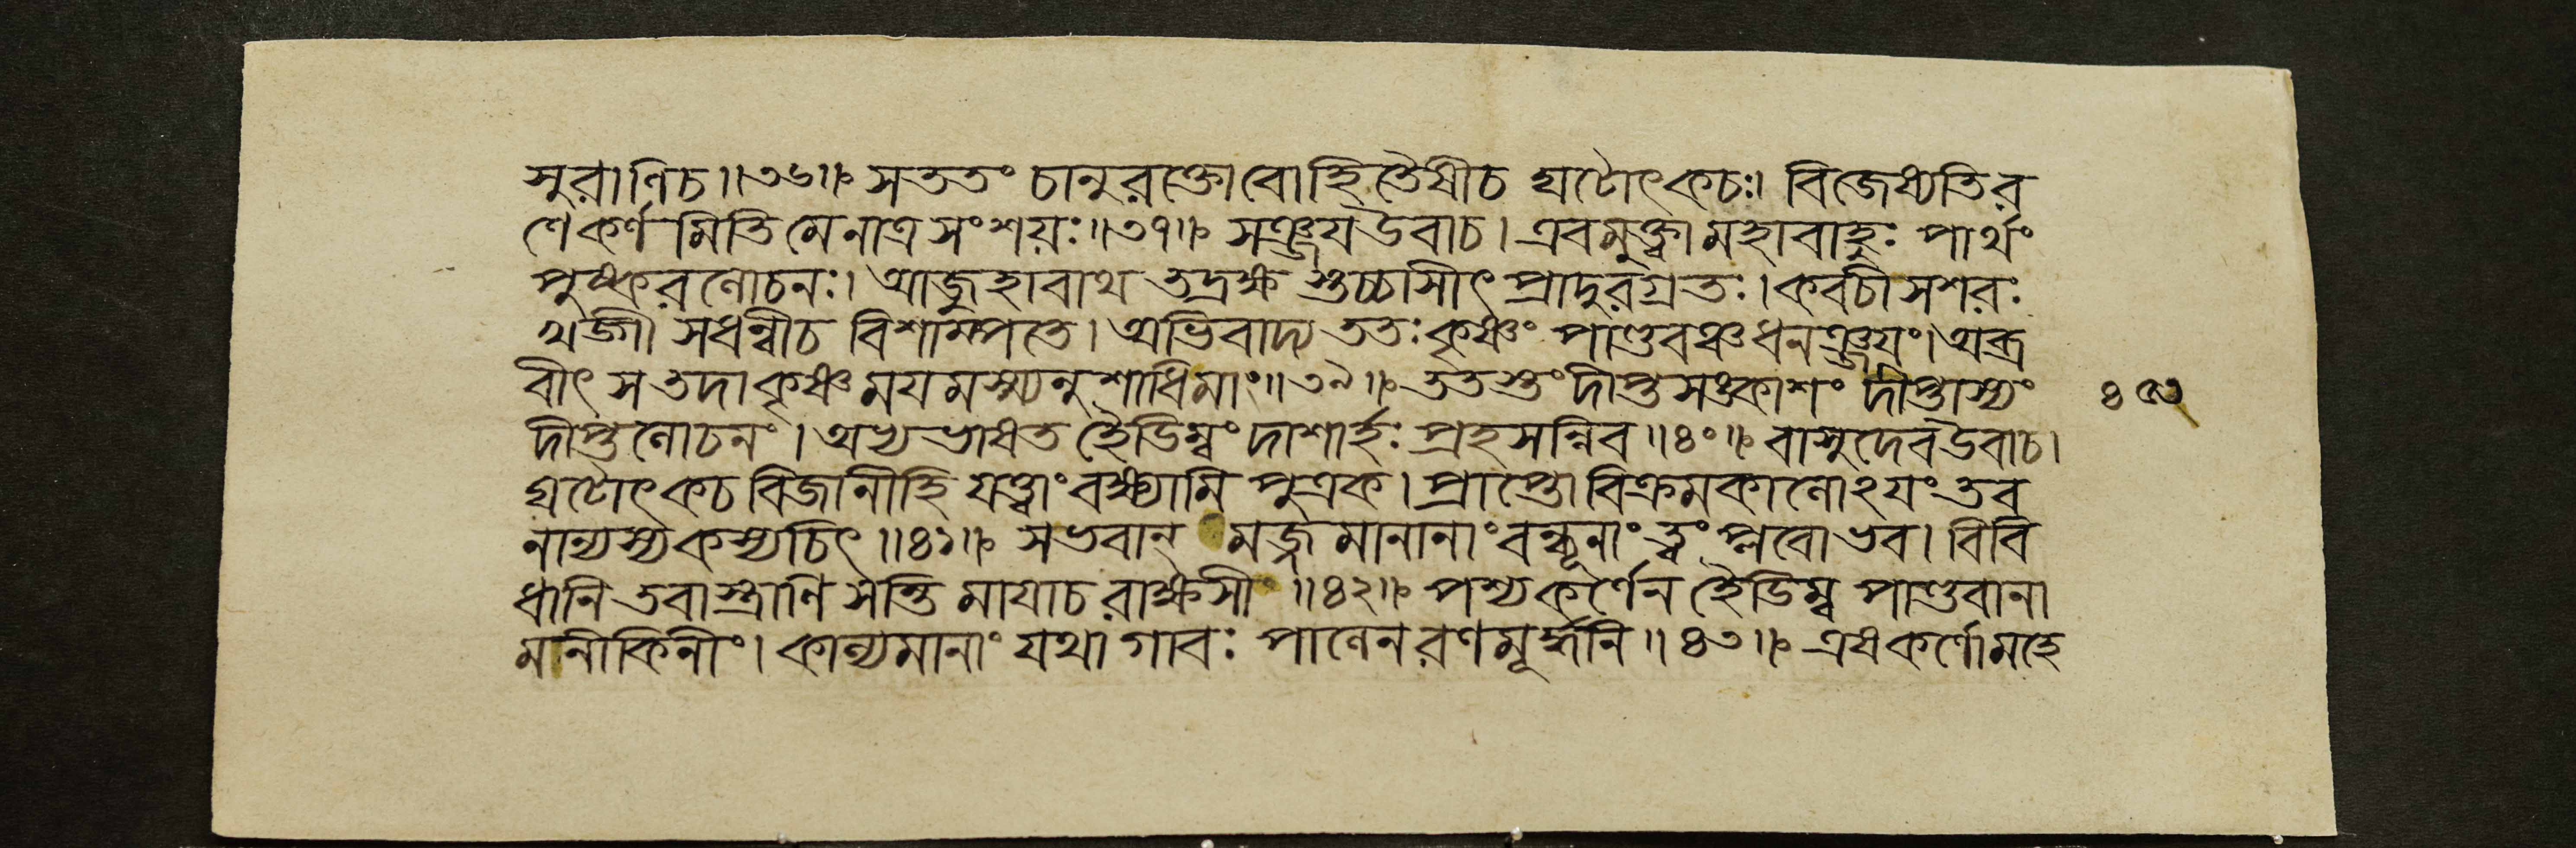 সুরাণিচ॥৩৬॥ সততং চানুরক্তোবোহিতৈষীচ ঘটোৎকচঃ। বিজেষ্যতির
ণেকর্ণমিতিমেনাত্রসংশয়ঃ॥৩৭॥ সঞ্জয়উবাচ। এবমুক্ত্বামহাবাহুঃ পার্থং
পুষ্করলোচনঃ। আজুহাবাথ তদ্রক্ষ স্তচ্চাসীৎ প্রাদুরগ্রতঃ। কবচী সশরঃ
খড্গী সধন্বীচ বিশাম্পতে। অভিবাদ্য ততঃ কৃষ্ণং পাণ্ডবঞ্চ ধনঞ্জয়ং। অব্র
বীৎ স তদা কৃষ্ণময়মস্ম্যনুশাধিমাং॥৩৯॥ ততস্তং দীপ্তসঙ্কাশং দীপ্তাস্যং
দীপ্তলোচনং। অভ্যভাষত হৈডিম্বং দাশার্হঃ প্রহসন্নিব॥৪০॥ বাসুদেবউবাচ।
ঘটোৎকচ বিজানীহি যত্ত্বাং বক্ষ্যামি পুত্রক। প্রাপ্তোবিক্রমকালোঽয়ং তব
নান্যস্যকস্যচিৎ॥৪১॥ সভবান্ মজ্জমানানাং বন্ধূনাং ত্বং প্লবোভব। বিবি
ধানি তবাস্ত্রাণি সন্তি মায়াচ রাক্ষসী॥৪২॥ পশ্যকর্ণেন হৈডিম্ব পাণ্ডবানা
মনীকিনীং। কাল্যমানাং যথা গাবঃ পালেন রণমূর্দ্ধনি॥৪৩॥ এষকর্ণোমহে